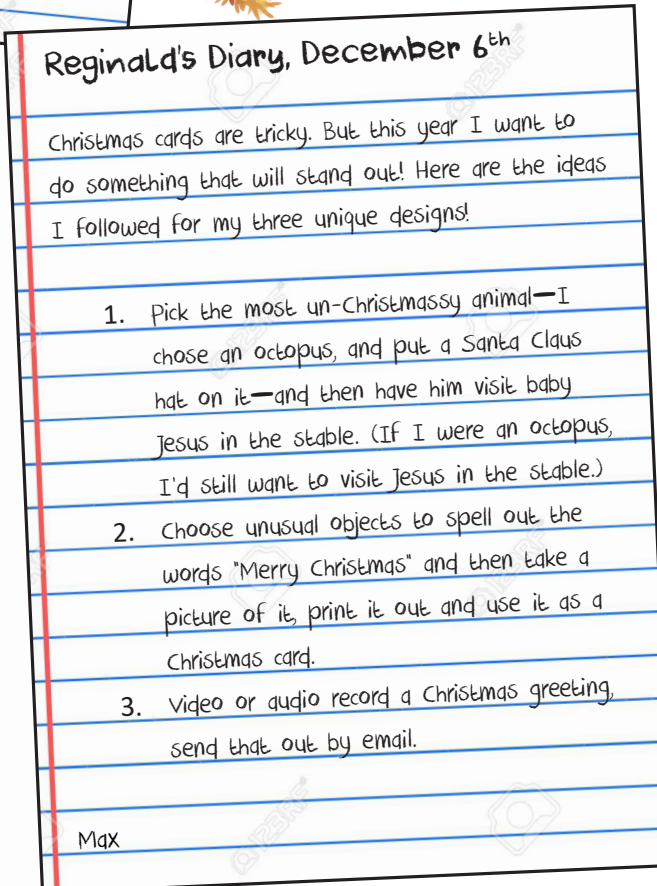 Reginald's Diary, December 6th
Christmas cards are tricky. But this year I want to
do something that will stand out! Here are the ideas
I followed for my three unique designs!
1. Pick the most un-Christmassy animal—I
chose an octopus, and put a Santa Claus
hat on it—and then have him visit baby
Jesus in the stable. (If I were an octopus,
I'd still want to visit Jesus in the stable.)
2. Choose unusual objects to spell out the
words "Merry Christmas" and then take a
picture of it, print it out and use it as a
Christmas card.
3. Video or audio record a Christmas greeting,
send that out by email.
Max
123RF
123RF
123RF
123RF
123RF